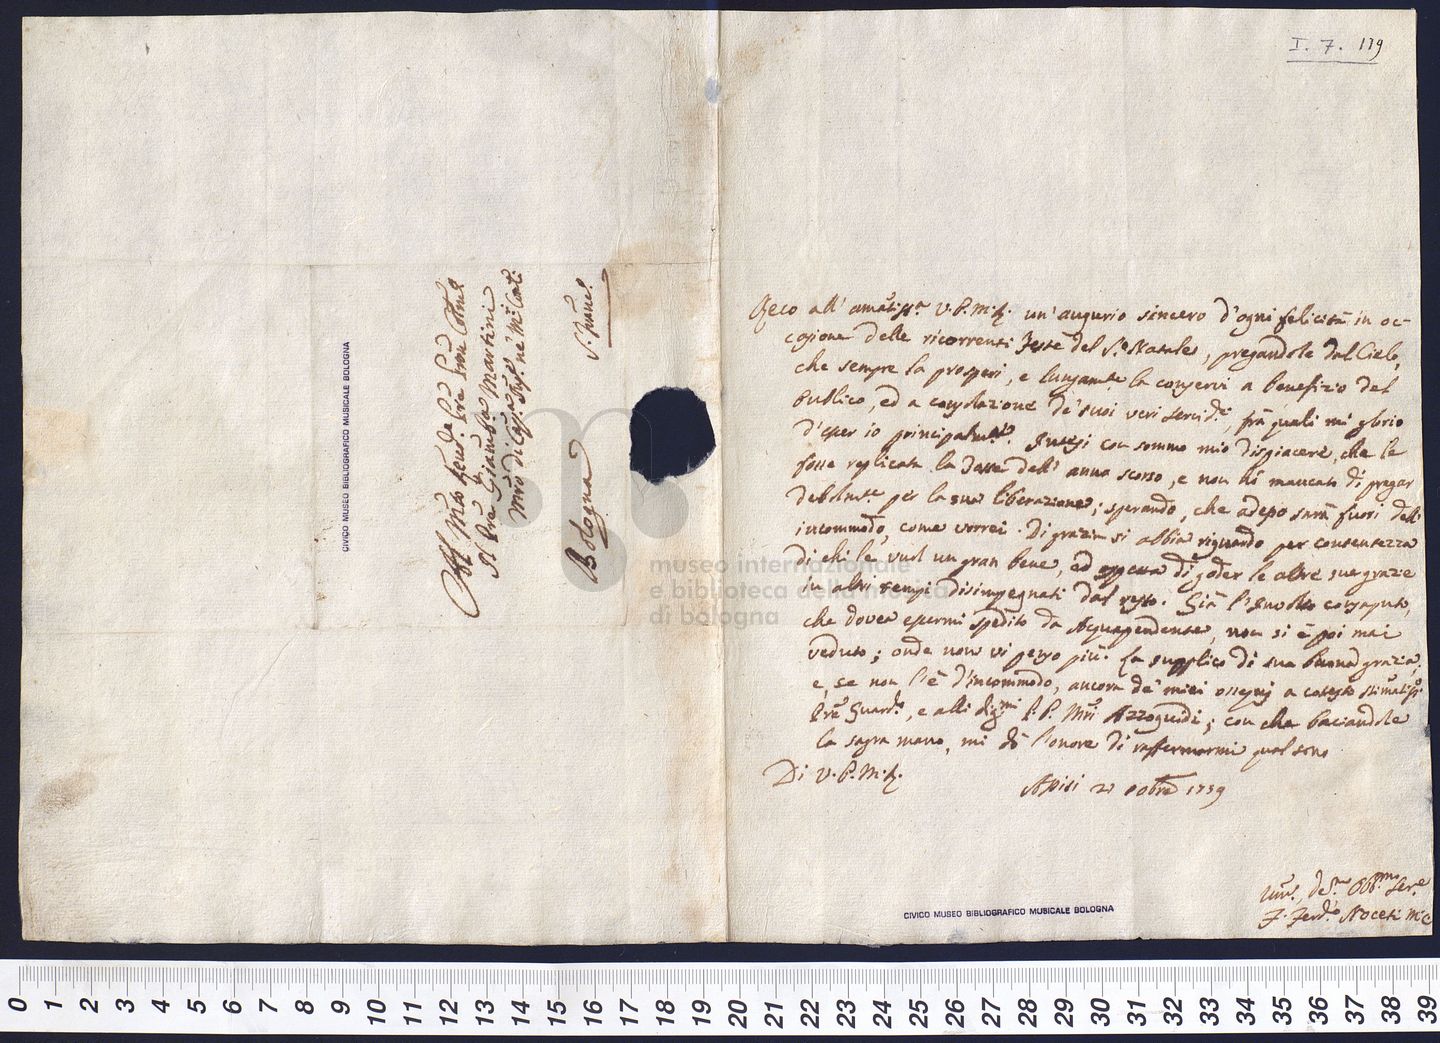 I. 7. 119
Reco all' amatiss.a V.P.M.R. un' augurio sincero d'ogni felicità in oc-
casione delle ricorrenti Feste del S. Natale, pregandole dal Cielo,
che sempre la prosperi, e lungam.te la conservi a benefizio del
publico, ed a consolazione de' suoi veri servi di, frà quali mi glorio
d'esser io principalm.te. Intesi con sommo mio dispiacere, che le
fosse replicata la dell' anno scorso, e non hò mancato di pregar
debolm.te per la sua liberazione; sperando, che adesso sarà fuori dell'
incommodo, come vorrei. Di grazia si abbia riguardo per contentezza
di chi le vuol un gran bene, ed di goder le altre sue grazie
in altri tempi disimpegnati dal resto. Già l'involto consaputo,
che dovea essermi spedito da Acquapendente, non si è poi mai
veduto; onde non vi penso più. La supplico di sua buona grazia,
e, se non l'è d'incommodo, ancora de' miei ossequj a cotesto stimatiss.o
Pre Guard.o, e alli P.P. Mri Azzoguidi; con che baciandole
la sagra mano, mi dò l'onore di raffermarmi qual sono
Di V.P.M.R.
Assisi 21 1739
Um. De.mo Obb.mo Ser.e
F. Ferd.o Noceti M.C.
Al M.to Rev.do Pre
Il Pre Giamb.a Martini
Mro di Capp.a ne' M.ri Con.ti
S. Franc.o
Bologna
CIVICO MUSEO BIBLIOGRAFICO MUSICALE BOLOGNA
CIVICO MUSEO BIBLIOGRAFICO MUSICALE BOLOGNA
museo internazionale
e biblioteca della musica
di bologna
0 1 2 3 4 5 6 7 8 9 10 11 12 13 14 15 16 17 18 19 20 21 22 23 24 25 26 27 28 29 30 31 32 33 34 35 36 37 38 39